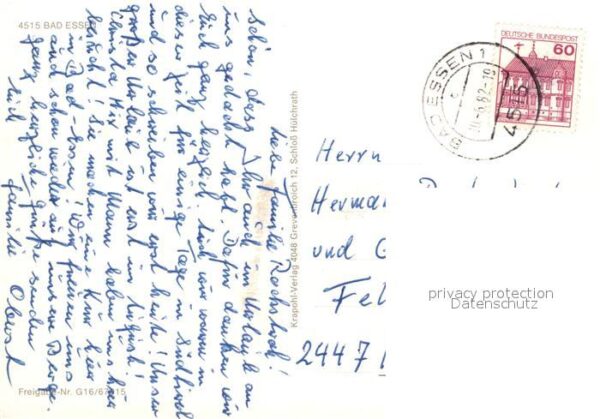 4515 BAD ESSEN
Liebe Familie
schön, dass Ihr auch im Urlaub an
uns gedacht habt. Dafür danken wir
Euch ganz herzlich. Sind wir waren in
dieser Zeit für einige Tage in Südtirol
und so schreiben wir erst heute! Unser
großer Urlaub ist erst im August!
Christa mit Mann haben uns hier
besucht! Sie machen eine Kur hier
in Bad-Essen! Wir freuen uns
auch schon wieder auf unsere Berge.
Ganz herzliche Grüße senden
Euch Familie
Freigabe-Nr. G16/67
Krapohl-Verlag 4048 Grevenbroich 12, Schloß Hülchrath
DEUTSCHE BUNDESPOST
60
BAD ESSEN 1
4515
Herrn
Herma
und G
Fel
2447
privacy protection
Datenschutz